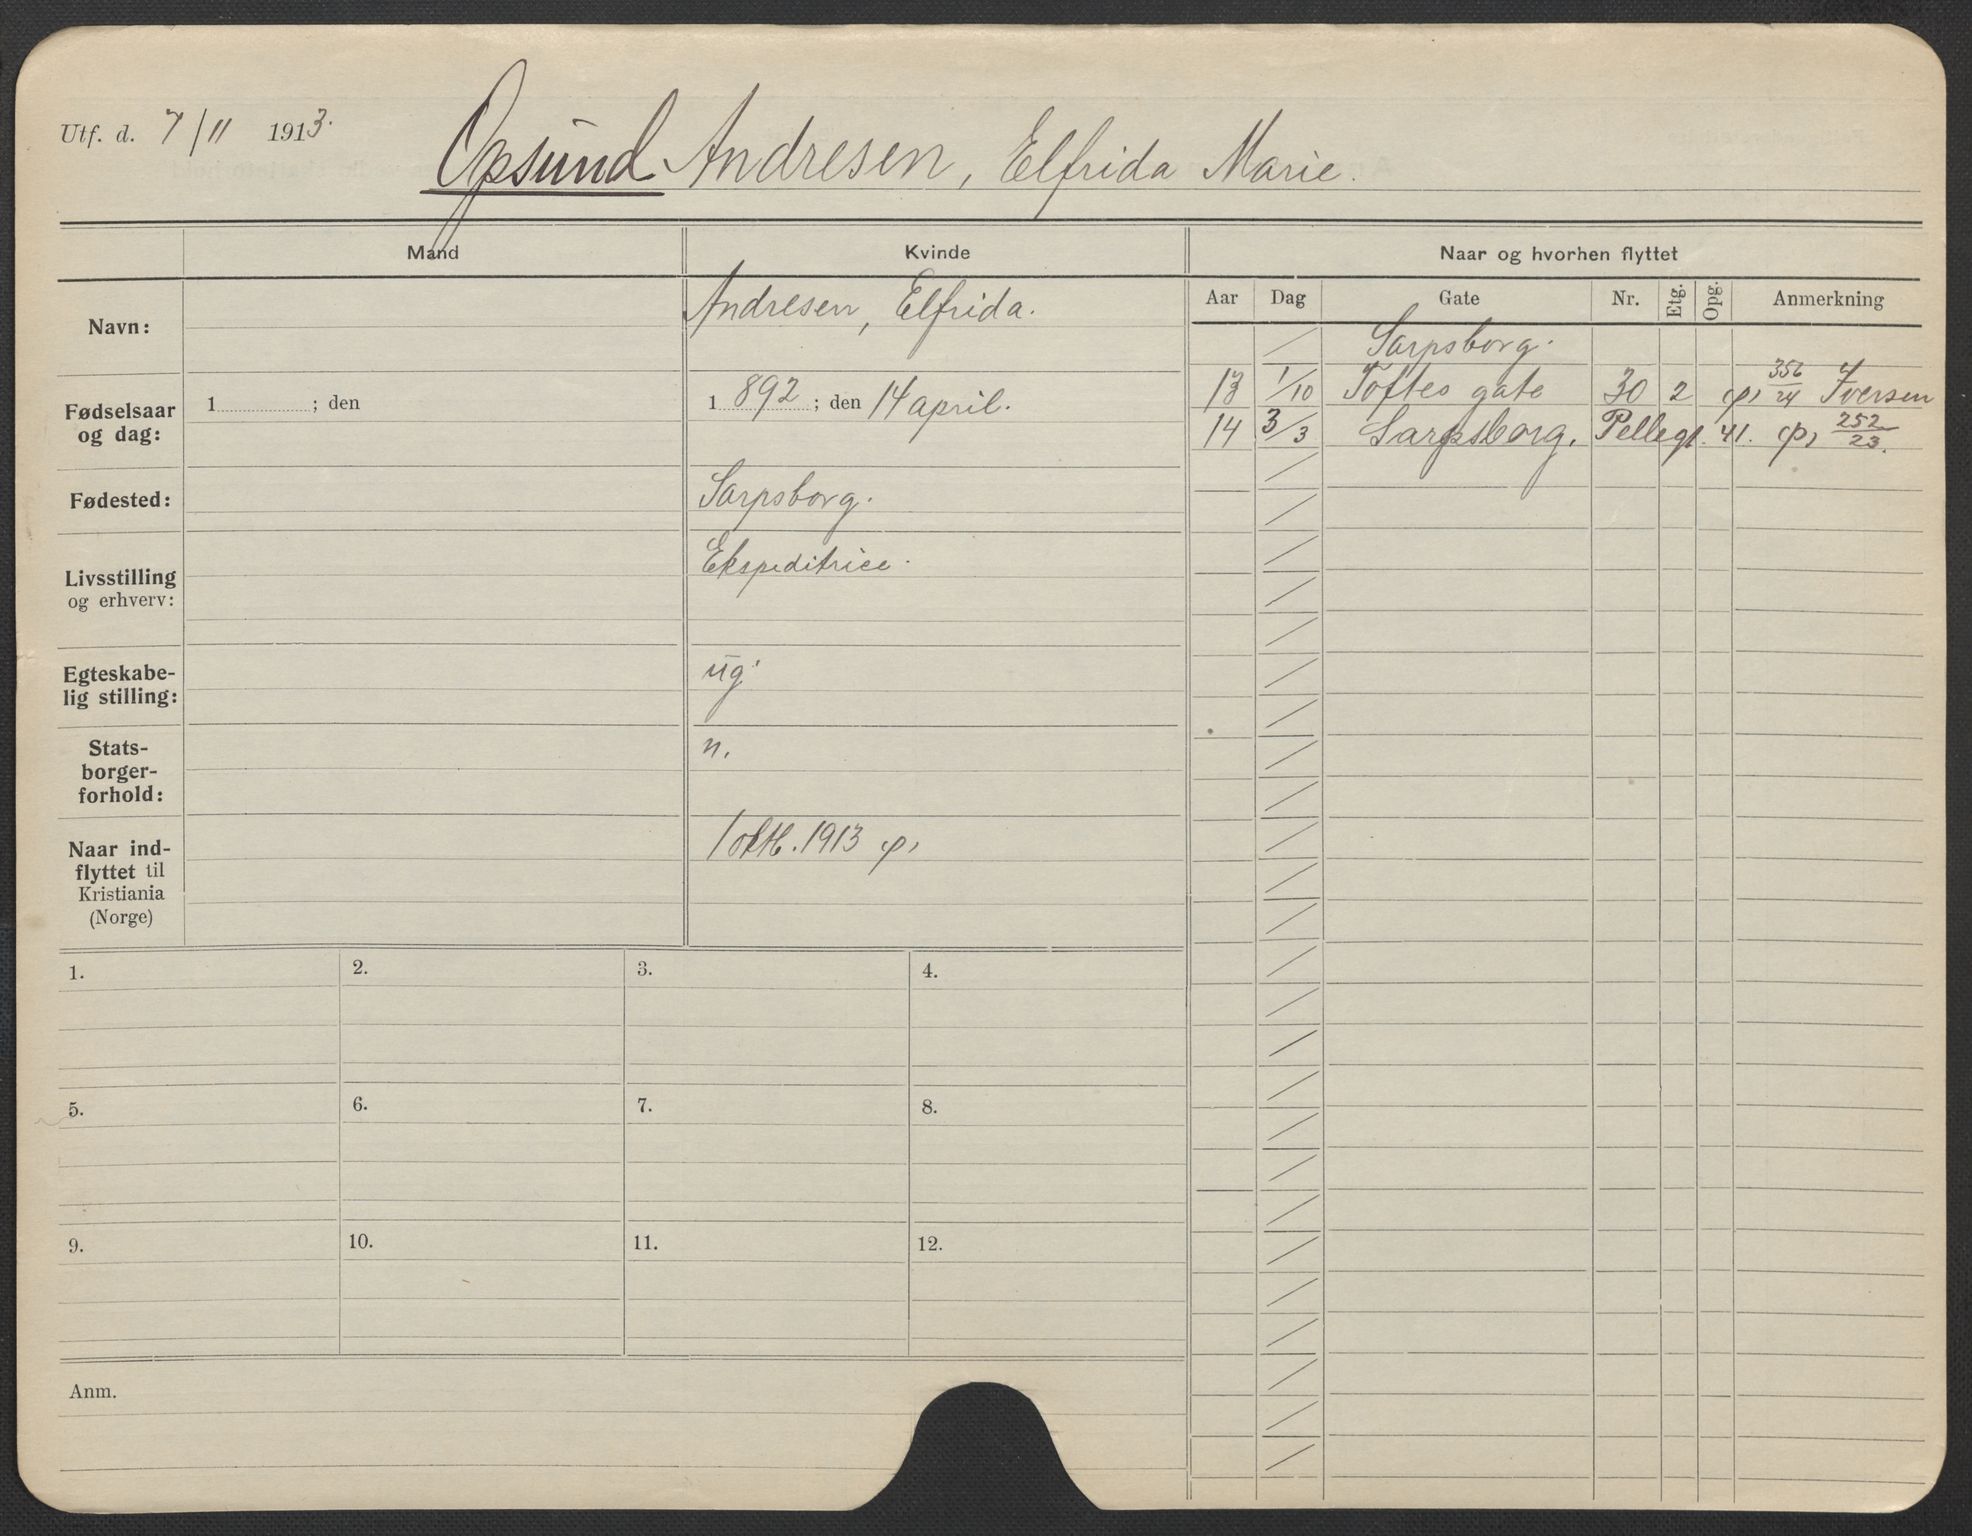 Utf. d. 7/11 1913.
Opsund Andresen, Elfrida Marie.
Mand Kvinde Naar og hvorhen flyttet
Navn: Andresen, Elfrida.
Aar Dag Gate Nr. Etg. Opg. Anmerkning
Sarpsborg.
13 1/10 Toftes gate 30 2 356/24 Iversen
14 3/3 Sarpsborg. Pellegt. 41. 252/23.
Fødselsaar og dag: 1 ; den 1892 ; den 14 april.
Fødested: Sarpsborg.
Livsstilling og erhverv: Ekspeditrice.
Egteskabe-
lig stilling: ug.
Stats-
borger-
forhold: n.
Naar ind-
flyttet til
Kristiania
(Norge) 1 okt. 1913
1. 2. 3. 4.
5. 6. 7. 8.
9. 10. 11. 12.
Anm.